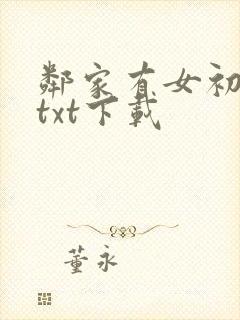 鄰家有女初
txt下載
董永